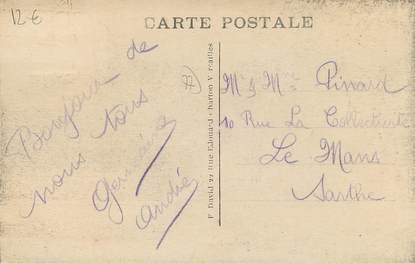 12 €
CARTE POSTALE
Bonjour de
nous tous
Germaine
André
77
P David 22 Rue Edouard Charton Versailles
Mr & Mme Pinard
10 Rue La Collectivité
Le Mans
Sarthe